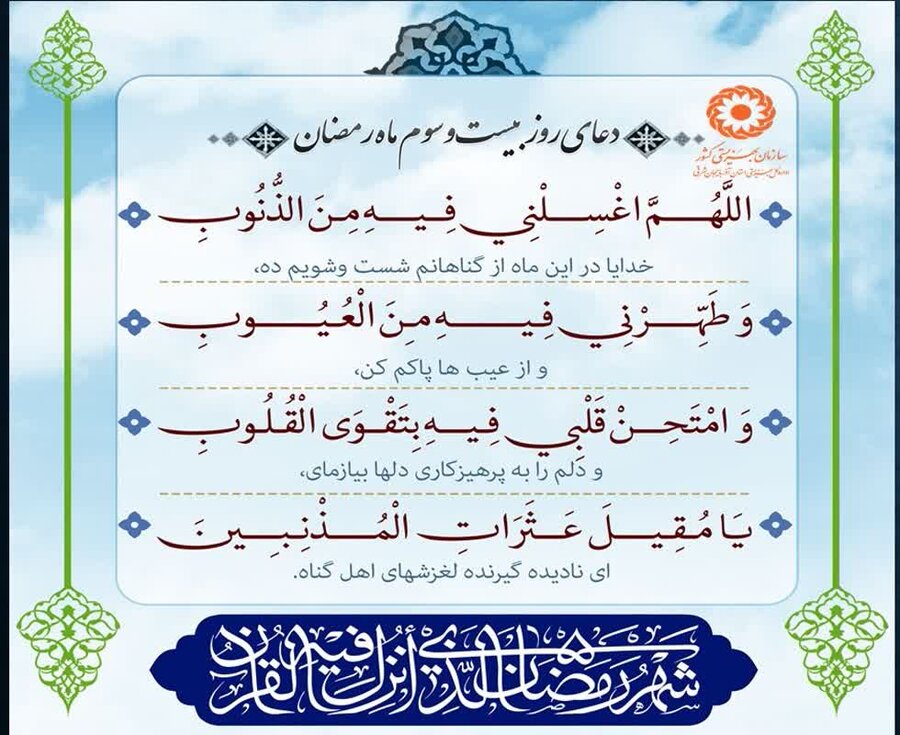 دعای روز بیست و سوم ماه رمضان
سازمان بهزیستی کشور
اداره کل بهزیستی استان آذربایجان شرقی
اللَّهُمَّ اغْسِلْنِي فِيهِ مِنَ الذُّنُوبِ
خدایا در این ماه از گناهانم شست وشویم ده،
وَ طَهِّرْنِي فِيهِ مِنَ الْعُيُوبِ
و از عیب ها پاکم کن،
وَ امْتَحِنْ قَلْبِي فِيهِ بِتَقْوَى الْقُلُوبِ
و دلم را به پرهیزکاری دلها بیازمای،
يَا مُقِيلَ عَثَرَاتِ الْمُذْنِبِينَ
ای نادیده گیرنده لغزشهای اهل گناه.
شهر رمضان الذي أنزل فيه القرآن